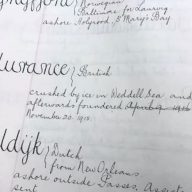 Norwegian
Baltimore for Laurvig
ashore Holyrood, St Mary's Bay
British
crushed by ice in Weddell Sea and
afterwards foundered
November 20. 1915.
Dutch
from New Orleans
ashore outside Passes, Assist
sent